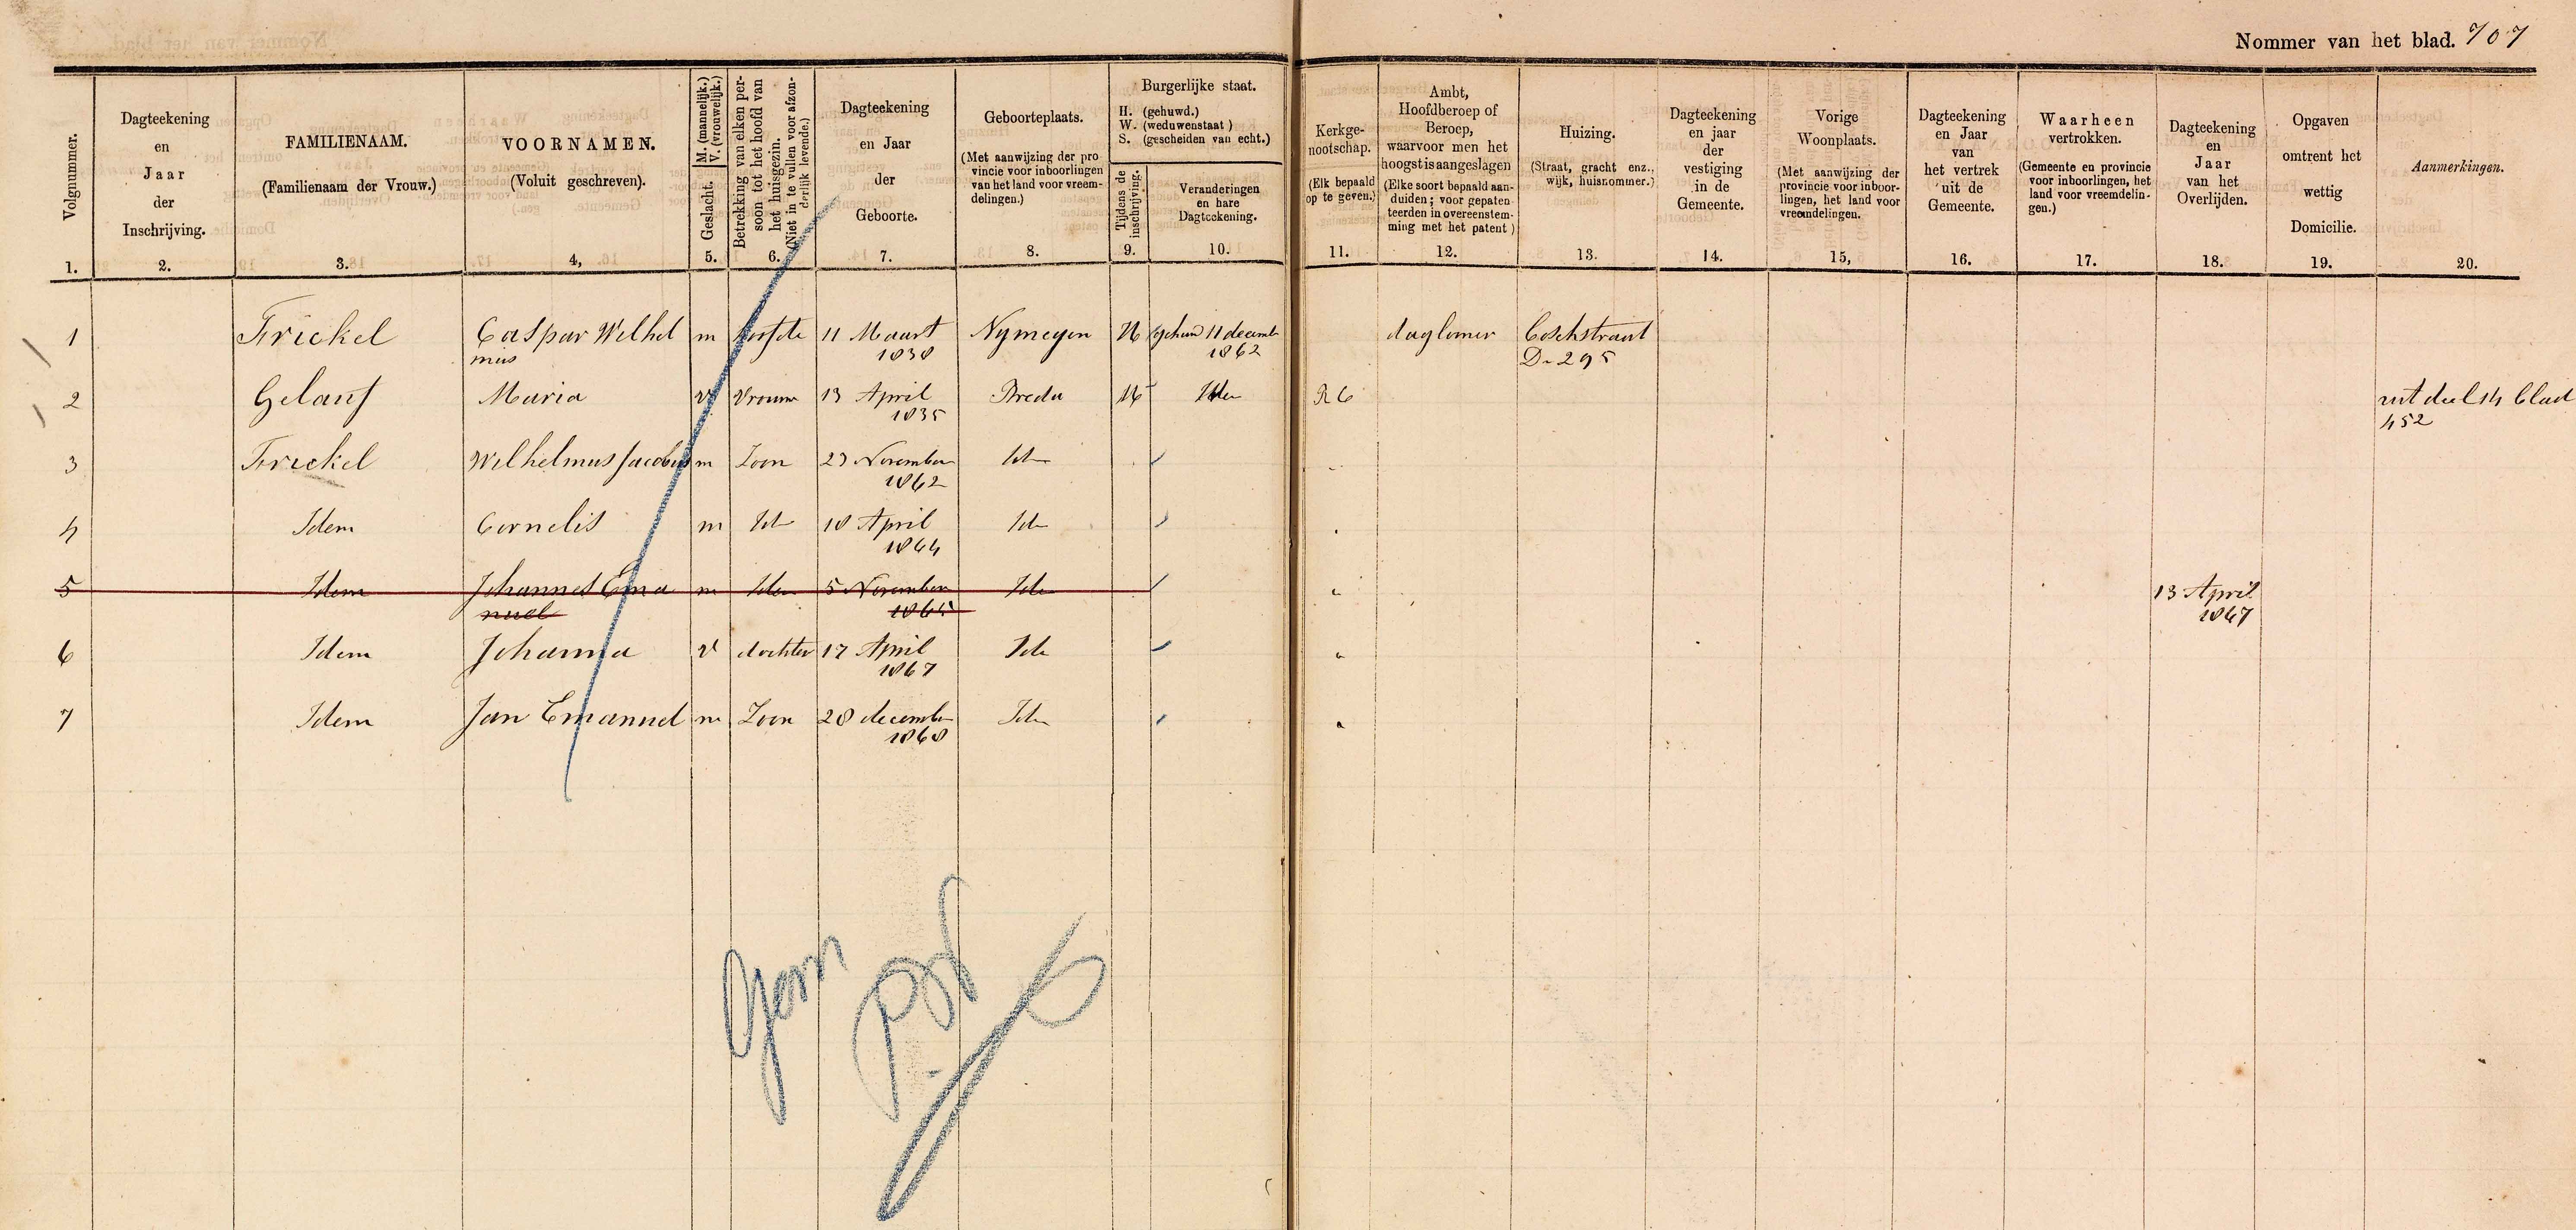 Nommer van het blad. 707
Volgnummer.
1.
Dagteekening
en
Jaar
der
Inschrijving.
2.
FAMILIENAAM.
(Familienaam der Vrouw.)
3.
VOORNAMEN.
(Voluit geschreven).
4,
M. (mannelijk.)
V. (vrouwelijk.)
Geslacht.
5.
Betrekking van elken per-
soon tot het hoofd van
het huisgezin.
(Niet in te vullen voor afzon-
derlijk levende.)
6.
Dagteekening
en Jaar
der
Geboorte.
7.
Geboorteplaats.
(Met aanwijzing der pro
vincie voor inboorlingen
van het land voor vreem-
delingen.)
8.
Burgerlijke staat.
H. (gehuwd.)
W. (weduwenstaat)
S. (gescheiden van echt.)
Tijdens de
inschrijving.
9.
Veranderingen
en hare
Dagteekening.
10.
Kerkge-
nootschap.
(Elk bepaald
op te geven.)
11.
Ambt,
Hoofdberoep of
Beroep,
waarvoor men het
hoogst is aangeslagen
(Elke soort bepaald aan-
duiden; voor gepaten
teerden in overeenstem-
ming met het patent)
12.
Huizing.
(Straat, gracht enz.,
wijk, huisnommer.)
13.
Dagteekening
en jaar
der
vestiging
in de
Gemeente.
14.
Vorige
Woonplaats.
(Met aanwijzing der
provincie voor inboor-
lingen, het land voor
vreemdelingen.
15,
Dagteekening
en Jaar
van
het vertrek
uit de
Gemeente.
16.
Waarheen
vertrokken.
(Gemeente en provincie
voor inboorlingen, het
land voor vreemdelin-
gen.)
17.
Dagteekening
en
Jaar
van het
Overlijden.
18.
Opgaven
omtrent het
wettig
Domicilie.
19.
Aanmerkingen.
20.
1 Frickel Caspar Wilhel m hoofde 11 Maart Nymegen H 11 decemb daglooner Boschstraat
mus 1838 1862 D 295
2 Gelauf Maria V Vrouw 13 April Breda H Idem RC uit deel 14 blad
1835 452
3 Frickel Wilhelmus Jacobus m Zoon 23 November Idm
1862
4 Idem Cornelis m Idm 18 April Idm
1864
5 Idem Johannes Ema m Idem 5 November Idem 13 April
nuel 1865 1867
6 Idem Johanna V dochter 17 April Idem
1867
7 Idem Jan Emanuel m Zoon 28 decemb Idem
1868